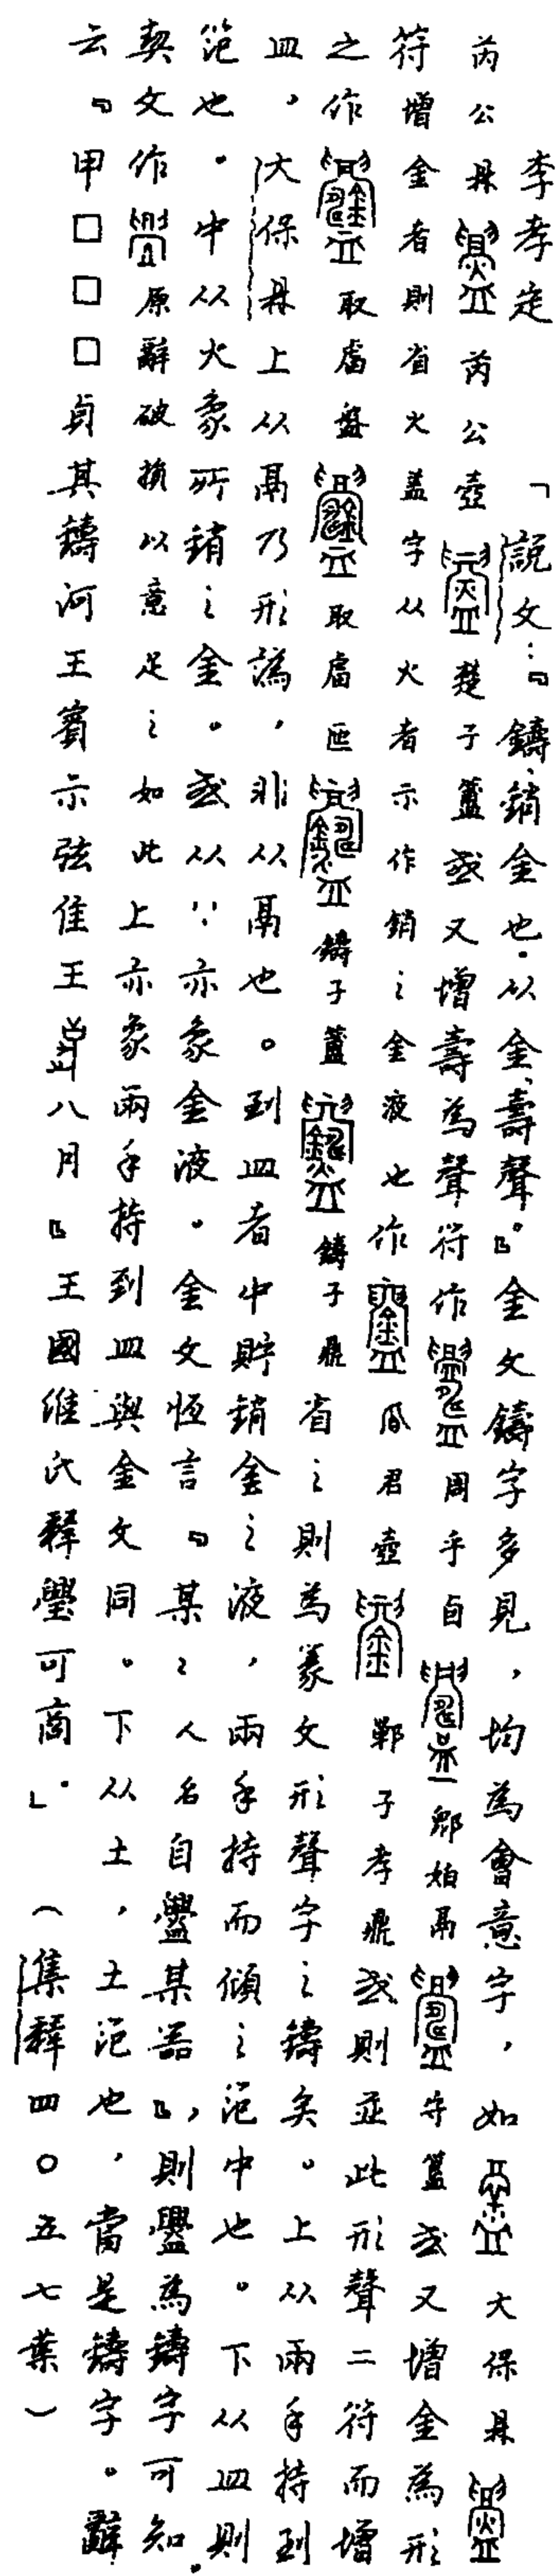 李孝定 「說文：『鑄、銷金也。从金、壽聲』。金文鑄字多見，均為會意字，如 大保鼎
芮公鼎 芮公壺 楚子簠或又增壽為聲符作 周乎卣 鄬始鬲 守簋或又增金為形
符增金者則省火蓋字从火者示作銷之金液也作 君壺 鄲子孝鼎或則並此形聲二符而增
之作 取膚盤 取膚匜 鑄子簠 鑄子鼎 省之則為篆文形聲字之鑄矣。上从兩手持到
皿，大保鼎上从鬲乃形譌，非从鬲也。到皿者中貯銷金之液，兩手持而傾之范中也。下从皿則
范也。中从火象所銷之金。或从∵亦象金液。金文恒言『某々人名自鑄某器』，則鑄為鑄字可知。
契文作 原辭破損以意足之如此上亦象兩手持到皿與金文同。下从土，土范也，當是鑄字。辭
云『甲□□□貞其鑄河王賓示弦隹王 八月』王國維氏釋釁可商。」（集釋四〇五七葉）